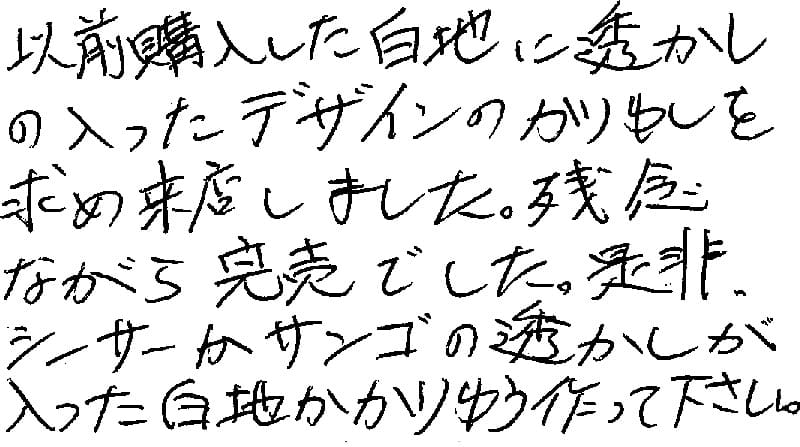 以前購入した白地に透かし
の入ったデザインのかりゆしを
求め来店しました。残念
ながら完売でした。是非、
シーサーかサンゴの透かしが
入った白地かかりゆう作って下さい。